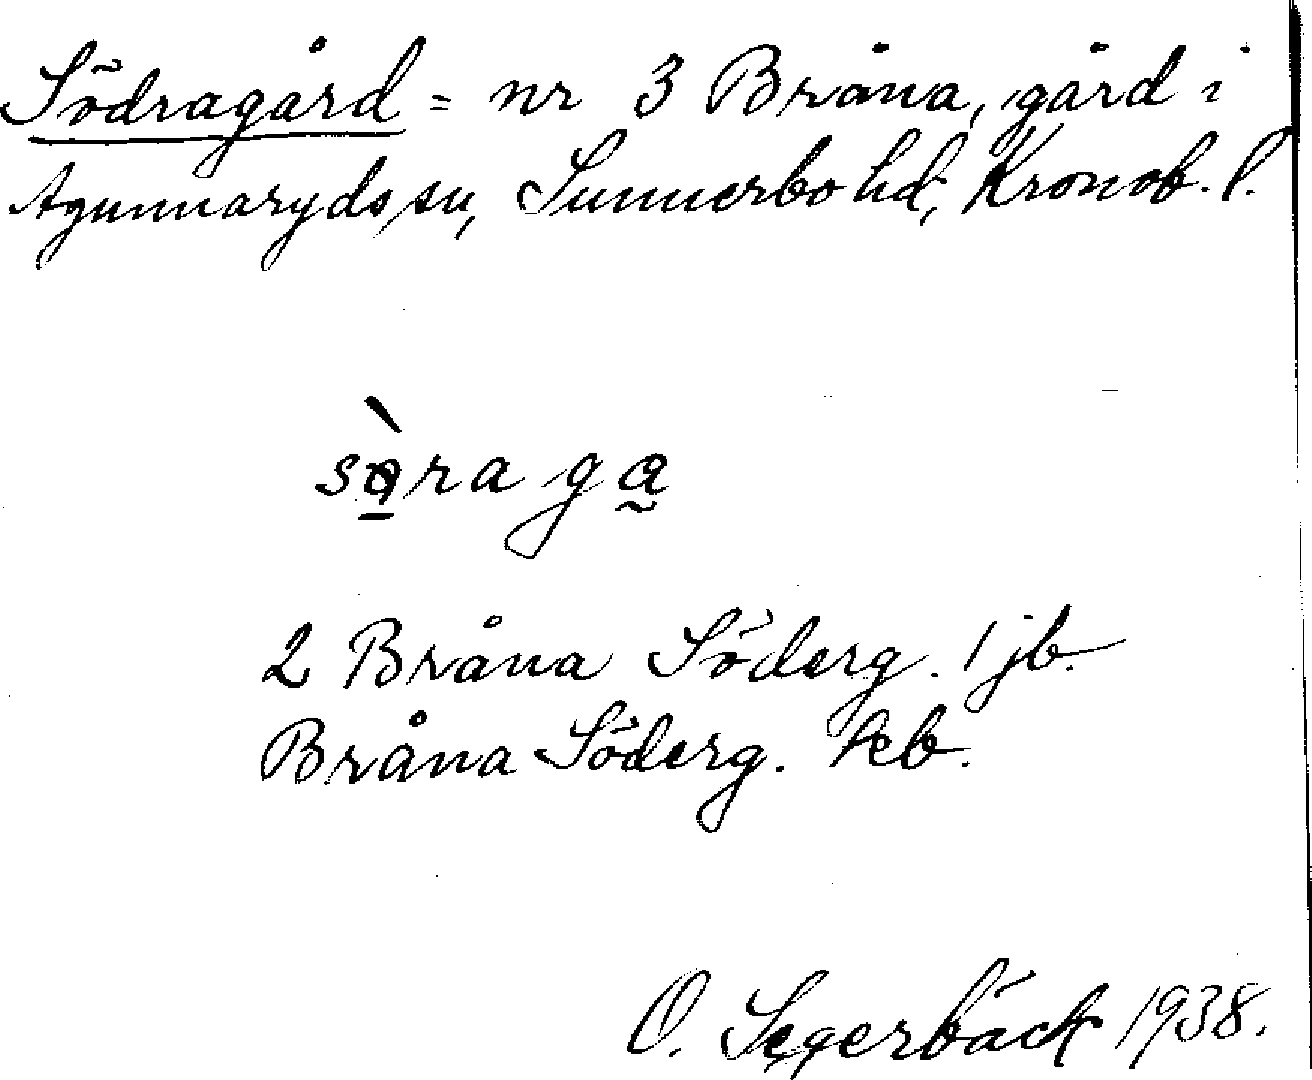 Södragård = nr 3 Bråna, gård i
Agunnaryds sn, Sunnerbo hd, Kronob. l.
2 Bråna Söderg. 1 jb.
Bråna Söderg. keb.
O. Segerbäck 1938.